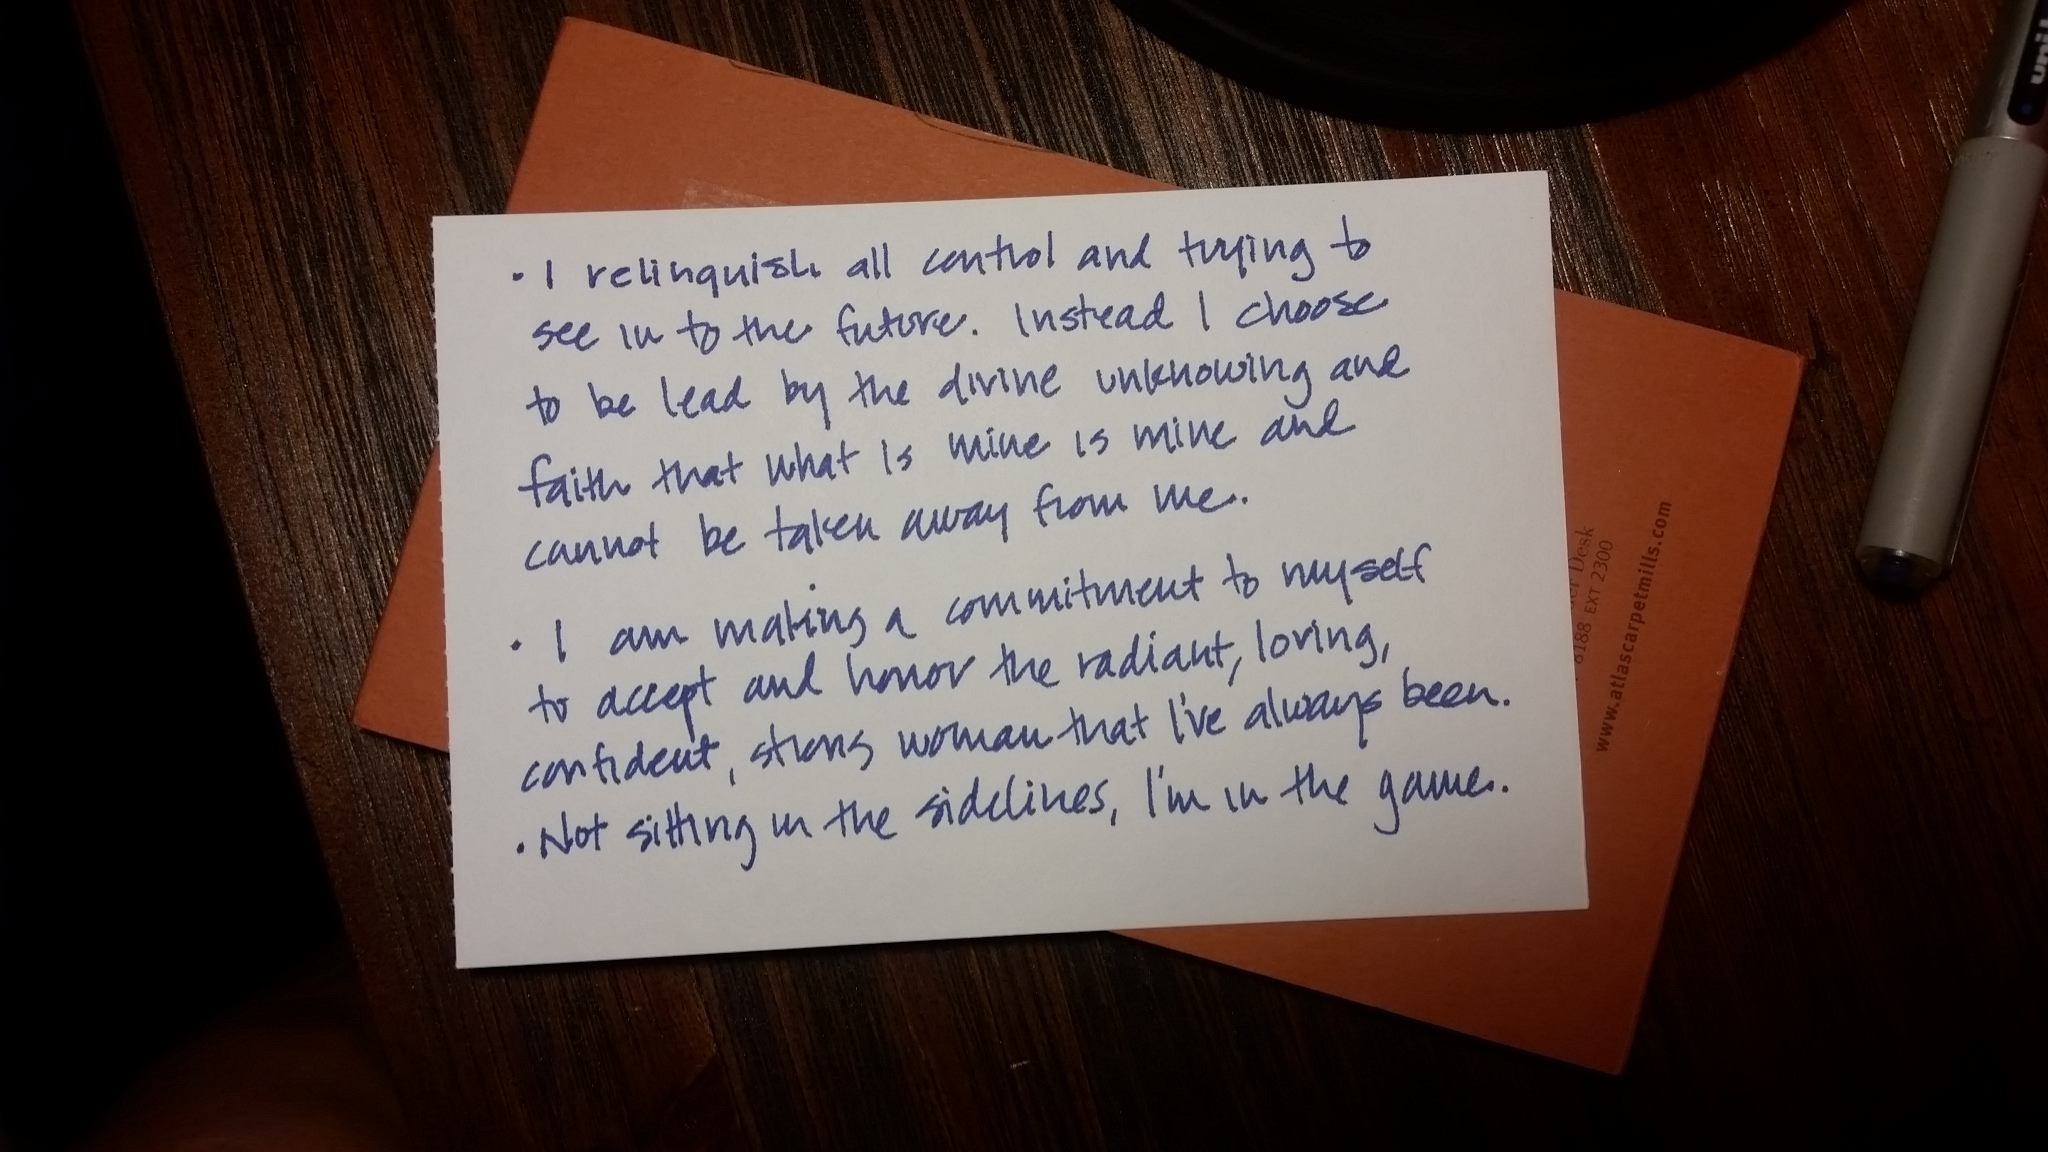 • I relinquish all control and trying to
see in to the future. Instead I choose
to be lead by the divine unknowing and
faith that what is mine is mine and
cannot be taken away from me.
• I am making a commitment to myself
to accept and honor the radiant, loving,
confident, strong woman that I've always been.
• Not sitting in the sidelines, I'm in the game.
Desk
8188 EXT 2300
www.atlascarpetmills.com
uni